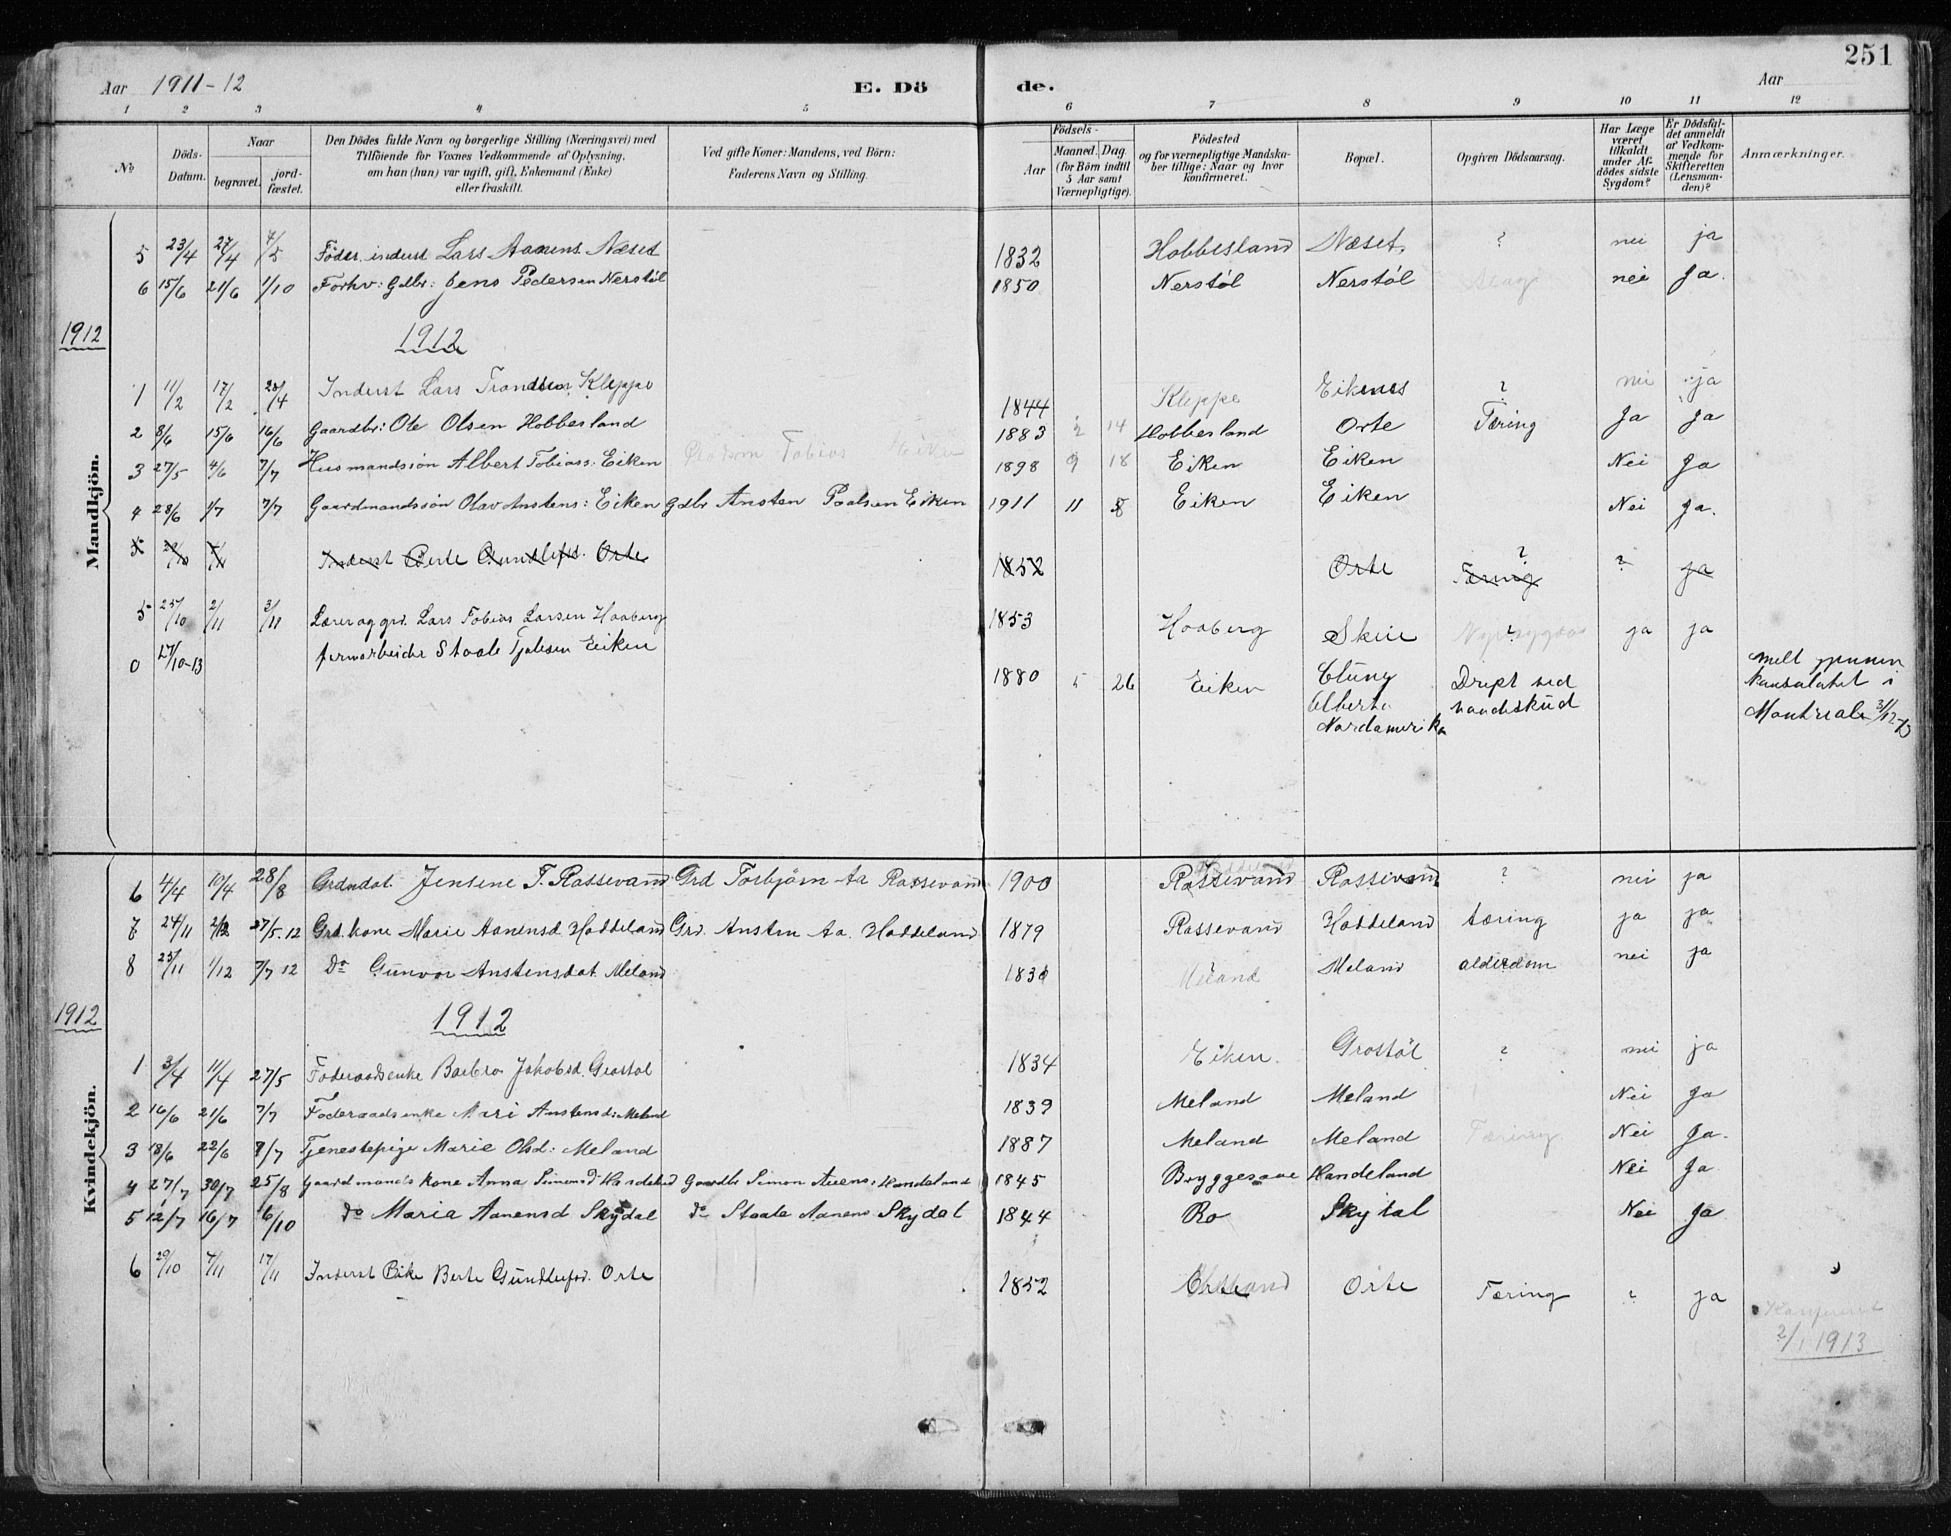 251
Aar 1911-12 E. Dö de. Aar
1 2 3 4 5 6 7 8 9 10 11 12
No
Döds-Datum.
Naar
begravet.
jord-fæstet.
Den Dödes fulde Navn og borgerlige Stilling (Næringsvei) med
Tilföiende for Voxnes Vedkommende af Oplysning,
om han (hun) var ugift, gift, Enkemand (Enke)
eller fraskilt.
Ved gifte Koner: Mandens, ved Börn:
Faderens Navn og Stilling.
Födsels-
Aar
Maaned. Dag
(for Börn indtil
5 Aar samt
Værnepligtige).
Födested
og for værnepligtige Mandska-
ber tillige: Naar og hvor
konfirmeret.
Bopæl.
Opgiven Dödsaarsag.
Har Læge
været
tilkaldt
under Af-
dödes sidste
Sygdom?
Er Dödsfal-
det anmeldt
af Vedkom-
mende for
Skifteretten
(Lensman-
den)?
Anmærkninger.
Mandkjön.
5 23/4 27/4 4/5 Föder. inderst Lars Aanens. Næset 1832 Hobbesland Næset. ? nei ja
6 15/6 21/6 1/10 Forhv: Gdbr: Jens Pedersen Nerstöl 1850 Nerstöl Nerstöl nei Ja.
1912
1912
1 11/2 17/2 28/4 Inderst Lars Trondsen Kleppe 1844 Kleppe Eikenes ? nei ja
2 8/6 15/6 16/6 Gaardbr: Ole Olsen Hobbesland 1883 2 14 Hobbesland Orte Tæring Ja Ja
3 27/5 4/6 7/7 Husmandssön Albert Tobiass. Eiken Tobias Eiken 1898 9 18 Eiken Eiken Nei Ja
4 28/6 1/7 7/7 Gaardmandssön Olav Anstens: Eiken Gdbr Ansten Paalsen Eiken 1911 11 8 Eiken Eiken Nei Ja.
5 Inderst Berte Gundlefsd. Orte 1852 Orte ? Tæring ? ja
5 25/10 2/11 3/11 Lærer og grd. Lars Tobias Larsen Haaberg 1853 Haaberg Skeie ? ja ja
0 27/10-13 farmarbeider Staale Tjølesen Eiken 1880 5 26 Eiken Cluny
Alberta
Nordamerika
Dræpt ved
vaadeskud
melt gjennem
Konsulatet i
Montreal 3/12-13
Kvindekjön.
6 4/4 10/4 28/8 Grdmdat. Jensene T. Rossevand Grd Torbjörn Aa Rossevand 1900 Rossevand Rossevand ? nei ja
7 24/11 2/12 27/5.12 Grd. kone Marie Aanensd. Haddeland Grd. Ansten Aa. Haddeland 1879 Rossevand Haddeland tæring ja ja
8 25/11 1/12 7/7 12 Do Gunvor Anstensdat. Meland 1830 Meland Meland alderdom nei ja
1912
1912
1 3/4 11/4 27/5 Föderaadsenke Barbro Jakobsd. Grostöl 1834 Eiken. Grostöl ? nei ja
2 16/6 21/6 7/7 Föderaadsenke Mari Anstensd: Meland 1839 Meland Meland Nei Ja
3 18/6 22/6 7/7 Tjenestepige Marie Olsd: Meland 1887 Meland Meland Tæring Nei Ja.
4 27/7 30/7 25/8 Gaardmands kone Anna Simonsd Handeland Gaardbr Simon Auens: Handeland 1845 Bryggesaae Handeland Nei Ja
5 12/7 16/7 6/10 Do Maria Aanensd Skydal Do Staale Aanens. Skydal 1844 Ro Skydal Nei Ja
6 29/10 4/11 17/11 Inderst Enke Berte Gundlefsd. Orte 1852 Orte Tæring ? ja
Konfereret
2/1 1913